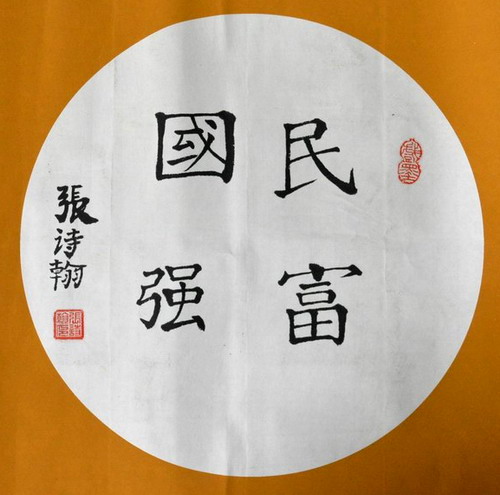 民富
國强
張诗翰